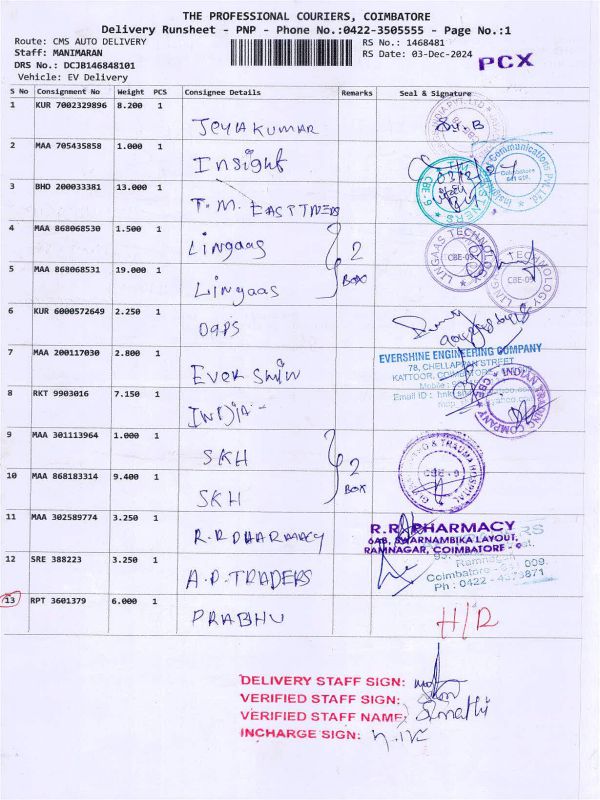 THE PROFESSIONAL COURIERS, COIMBATORE
Delivery Runsheet - PNP - Phone No.:0422-3505555 - Page No.:1
Route: CMS AUTO DELIVERY
Staff: MANIMARAN
DRS No.: DCJB146848101
Vehicle: EV Delivery
RS No.: 1468481
RS Date: 03-Dec-2024
PCX
S No Consignment No Weight PCS Consignee Details Remarks Seal & Signature
1 KUR 7002329896 8.200 1 JEYIAKUMAR
2 MAA 705435858 1.000 1 Insight
3 BHO 200033381 13.000 1 T.M.
4 MAA 868068530 1.500 1 Lingaas
2 BOX
5 MAA 868068531 19.000 1 Lingaas
6 KUR 6000572649 2.250 1
7 MAA 200117030 2.800 1 Ever Shin
8 RKT 9903016 7.150 1 INDIA
9 MAA 301113964 1.000 1 SKH
2 BOX
10 MAA 868183314 9.400 1 SKH
11 MAA 302589774 3.250 1 R.R PHARMACY
12 SRE 388223 3.250 1 A.P. TRADERS
13 RPT 3601379 6.000 1 PRABHU H/R
Communications Pvt. Ltd
CBE - 6
LINGAAS TECHNOLOGY
CBE-09
LINGAAS TECHNOLOGY
CBE-09
EVERSHINE ENGINEERING COMPANY
78, CHELLAPPAN STREET
KATTOOR, COIMBATORE
Mobile :
Email ID :
INDIAN TRADING COMPANY
CBE
& TRAUMA HOSPITAL
CBE - 9
R.R. PHARMACY
6AB, SWARNAMBIKA LAYOUT,
RAMNAGAR, COIMBATORE - 9
Ramnagar
Coimbatore - 641 009.
Ph : 0422 - 4373871
DELIVERY STAFF SIGN:
VERIFIED STAFF SIGN:
VERIFIED STAFF NAME:
INCHARGE SIGN: